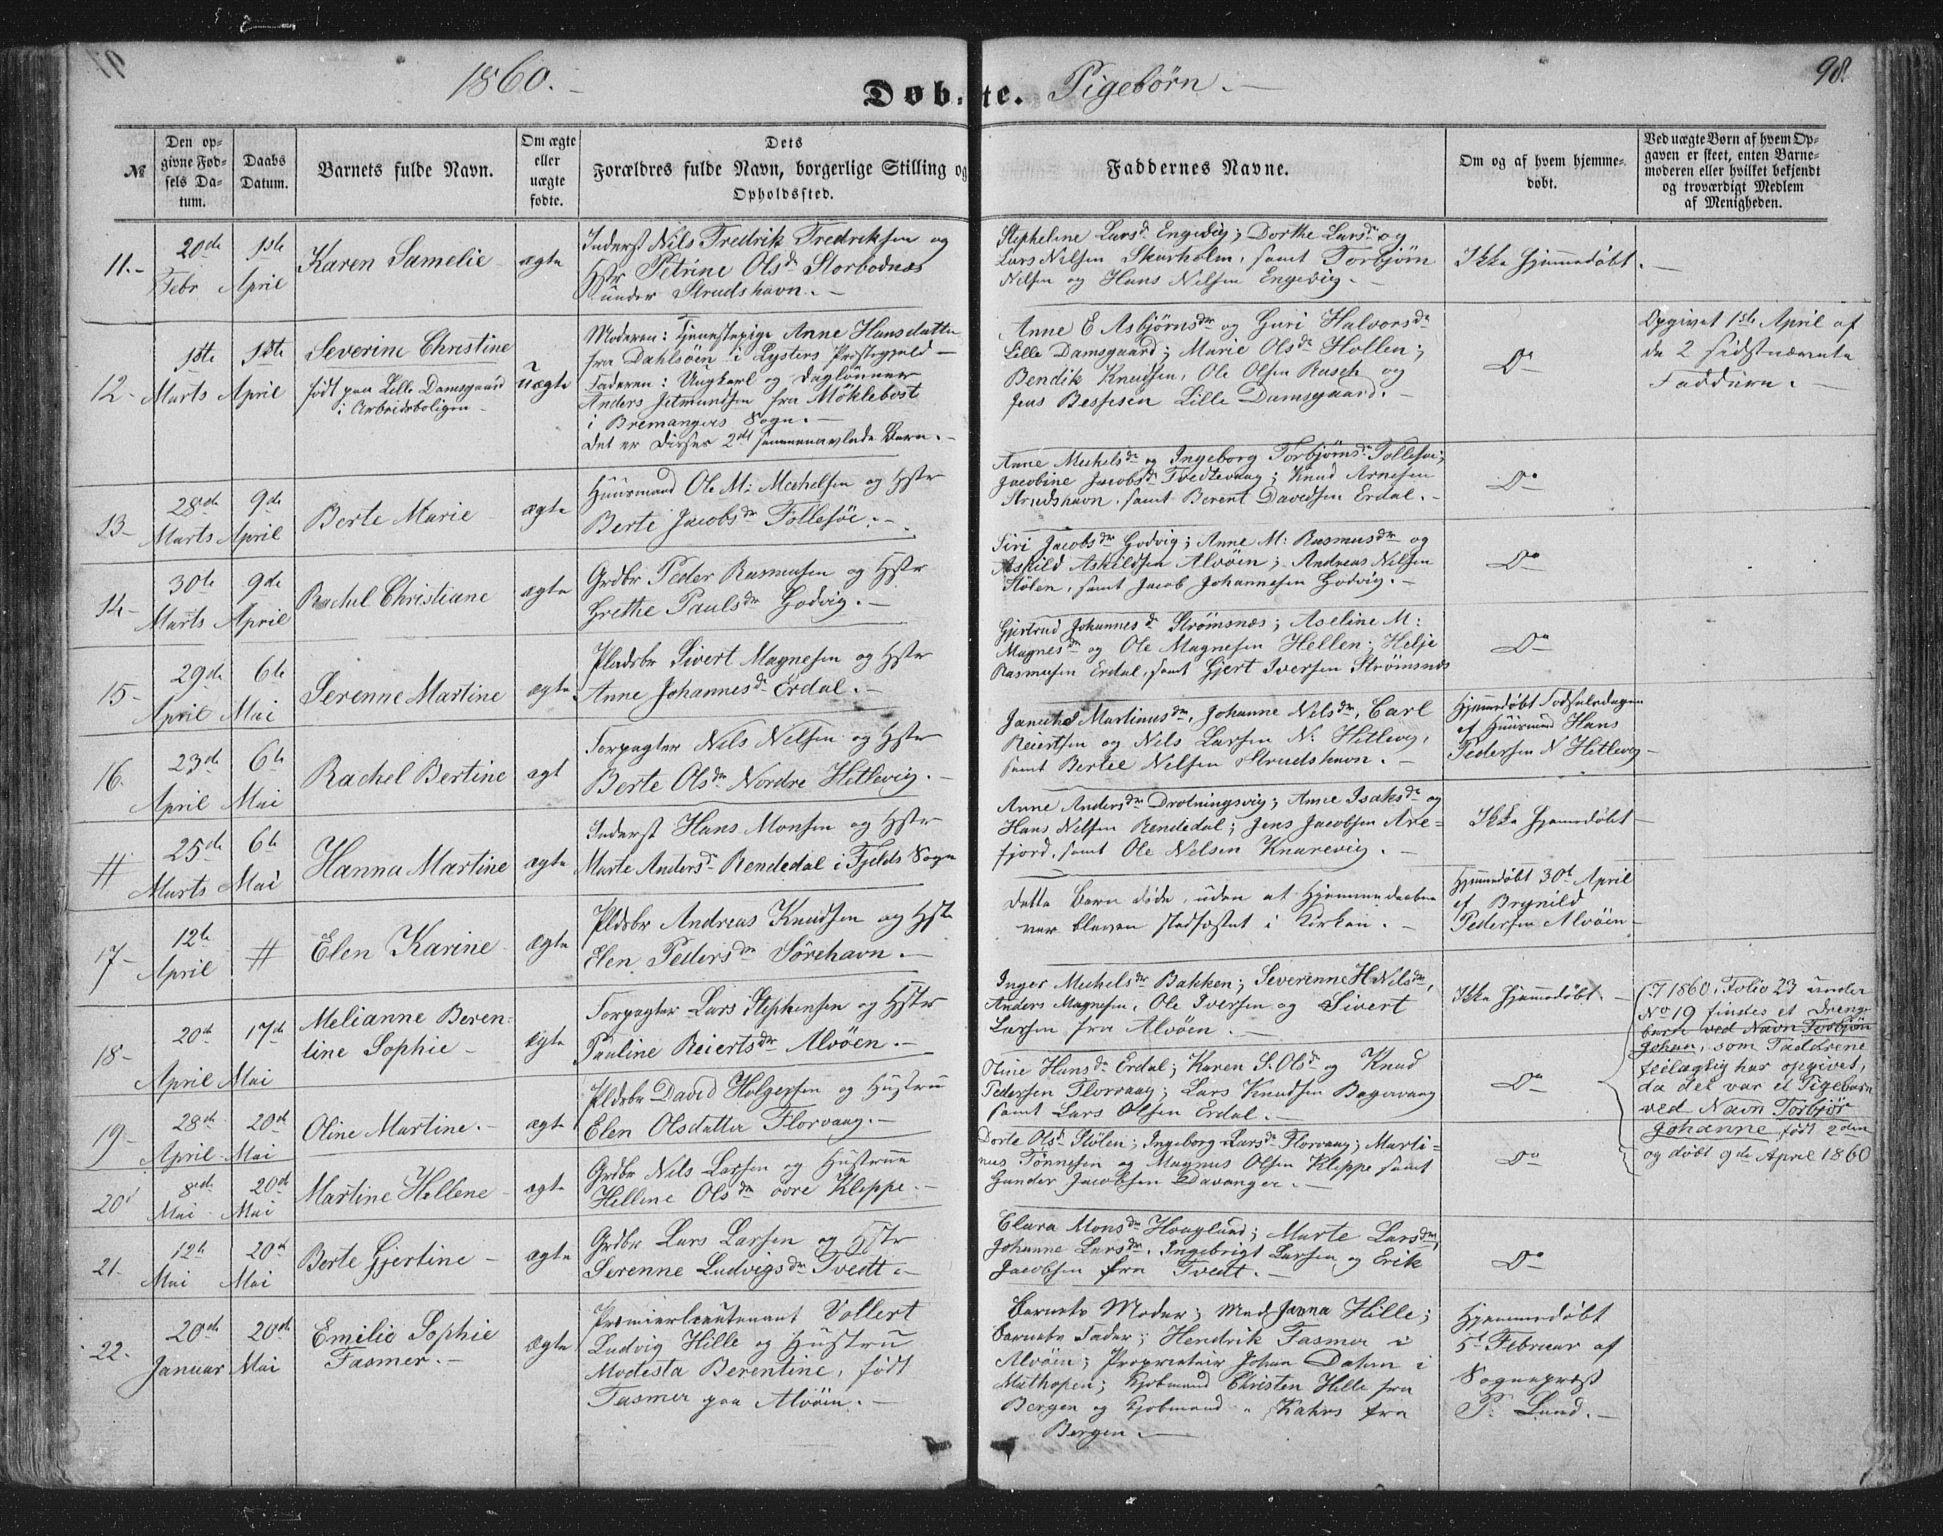 1860. Døbte. Pigebørn. 98.
№
Den op-
givne Fød-
sels Da-
tum.
Daabs
Datum.
Barnets fulde Navn.
Om ægte
eller
uægte
fødte.
Dets
Forældres fulde Navn, borgerlige Stilling og
Opholdssted.
Faddernes Navne.
Om og af hvem hjemme-
døbt.
Ved uægte Børn af hvem Op-
gaven er skeet, enten Barne-
moderen eller hvilket bekjendt
og troværdigt Medlem
af Menigheden.
11.-
20de
Febr
1ste
April
Karen Samelie
ægte
Inderst Nils Fredrik Fredriksen og
Hstr Petrine Olsdr Storbodnæs
under Strudshavn.-
Stepheline Larsdr Engevig; Dorthe Larsdr og
Lars Nilsen Skarholm, samt Torbjørn
Nilsen og Hans Nilsen Engevig.-
Ikke Hjemmedøbt.-
12-
18te
Marts
1ste
April
Severine Christine
født paa Lille Damsgaard
i Arbeidsboligen
uægte
Moderen: Tjenestepige Anne Hansdatter
fra Dahlsøen i Lysters Præstegjeld-
Faderen: Ungkarl og Daglønner
Anders Jetmundsen fra Møklebost
i Bremangers Sogn.-
Det er Disses 2det sammenavlede Barn.-
Anne E Asbjørnsdr og Guri Halvorsdr
Lille Damsgaard; Marie Olsdr Hollen;
Bendik Knudsen, Ole Olsen Rusch og
Jens Bessesen Lille Damsgaard.-
Do
Opgivet 1ste April af
de 2 sidstnævnte
Faddere.-
13-
28de
Marts
9de
April
Berte Marie
ægte
Huusmand Ole M: Michelsen og Hstr
Berte Jacobsdr Follesøe.-
Anne Michelsdr og Ingeborg Torbjørnsdr Follesøe;
Jacobine Jacobsdr Tvedtevaag; Knud Arnesen
Strudshavn, samt Berent Davidsen Erdal.-
Do
14-
30te
Marts
9de
April
Rachel Christiane
ægte
Grdbr Peder Rasmusen og Hstr
Grethe Paulsdr Godvig.-
Siri Jacobsdr Godvig; Anne M: Rasmusdr og
Askild Askildsen Alvøen; Andreas Nilsen
Stølen, samt Jacob Johannesen Godvig.-
Do
15-
29de
April
6te
Mai
Serenne Martine
ægte
Pladsbr Sivert Magnesen og Hstr
Anne Johannesdr Erdal.-
Gjertrud Johannesdr Strømsnæs; Aseline M:
Magnesdr og Ole Magnesen Hellen; Helje
Rasmusen Erdal, samt Gjert Iversen Strømsnæs
Do
16.
23de
April
6te
Mai
Rachel Bertine
ægt
Forpagter Nils Nilsen og Hstr
Berte Olsdr Nordre Hetlevig.-
Martinusdr, Johanne Nelsdr, Carl
Reiertsen og Nels Larsen N: Hetlevig,
samt Bertel Nilsen Strudshavn.-
Hjemmedøbt Fødselsdagen
af Huusmand Hans
Pedersen N Hetlevig-
#
25de
Marts
6te
Mai
Hanna Martine
ægte
Inderst Hans Monsen og Hstr
Marte Andersdr Rendedal i Fjelds Sogn
Anne Andersdr Drotningsvig; Anne Isaksdr og
Hans Nilsen Rendedal; Jens Jacobsen Are-
fjord, samt Ole Nelsen Knarevig.-
Ikke Hjemmedøbt-
17-
12te
April
#
Elen Karine
ægte
Pldsbr Andreas Knudsen og Hstr
Elen Pedersdr Sørehavn.-
Dette Barn døde, uden at Hjemmedaaben
var bleven stadfæstet i Kirken.-
Hjemmedøbt 30te April
af Brynild
Pedersen Alvøen-
18-
20de
April
17de
Mai
Melianne Beren-
tine Sophie-
ægte
Forpagter Lars Stephensen og Hstr
Pauline Reiertsdr Alvøen.-
Inger Michelsdr Bakken; Severenne H Nilsdr,
Anders Magnesen, Ole Iversen og Sivert
Larsen fra Alvøen.-
Ikke Hjemmedøbt.-
(I 1860, Folio 23 under
No 19 findes et Drenge-
barn ved Navn Torbjøn
Johan, som Faddrene
feilagtig har opgivet,
da det var et Pigebarn
ved Navn Torbjør
Johanne født 2den
og døbt 9de April 1860
19-
28de
April
20de
Mai
Oline Martine.-
ægte
Pldsbr David Holgersen og Hustru
Elen Olsdatter Florvaag.-
Oline Hansdr Erdal; Karen S. Olsdr og Knud
Pedersen Florvaag; Lars Knudsen
samt Lars Olsen Erdal.-
Do
20
8de
Mai
20de
Mai
Martine Hellene
ægte
Grdbr Nils Larsen og Hustrue
Helline Olsdr øvre Kleppe.-
Dorte Olsdr Stølen; Ingeborg Larsdr Florvaag; Marti-
nus Tønnesen og Magnus Olsen Kleppe samt
Gunder Jacobsen Davanger.-
Do
21-
12te
Mai
20de
Mai
Berte Gjertine-
ægte
Grdbr Lars Larsen og Hstr
Serenne Ludvigsdr Tvedt.-
Clara Monsdr Haugland; Marte Larsdr,
Johanne Larsdr, Ingebrigt Larsen og Erik
Jacobsen fra Tvedt.-
Do
22-
20de
Januar
20de
Mai
Emilie Sophie
Fasmer.-
ægte
Premierlieutenant Vollert
Ludvig Hille og Hustru
Modesta Berentine, født
Fasmer paa Alvøen.-
Barnets Moder; Mad Janna Hille;
Barnets Fader; Hendrik Fasmer i
Alvøen; Proprietair Johan Dahm i
Mathopen; Kjøbmand Christen Hille fra
Bergen og Kjøbmand " Kahrs fra
Bergen.-
Hjemmedøbt
5te Februar af
Sognepræst
P. Lund.-